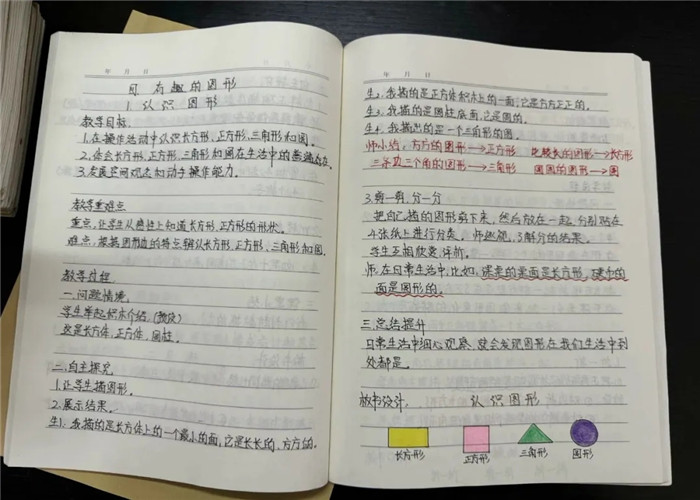 年 月 日
四 有趣的图形
1. 认识 图形
教学目标
1. 在操作活动中认识长方形,正方形,三角形和圆。
2. 体会长方形,正方形,三角形和圆在生活中的普遍存在。
3. 发展空间观念和动手操作能力。
教学重难点
重点,让学生从感性上知道长方形,正方形的形状。
难点,根据图形的特点辨认长方形,正方形,三角形和圆。
教学过程
一. 问题情境
学生举起积木介绍,(教设)
这是长方体,正方体,圆柱。
二. 自主探究
1. 让学生描图形。
2. 展示结果。
生1, 我描的是长方体上的一个最小的面,它是长长的,方方的。
年 月 日
生2, 我描的是正方体积木上的一面,它是方方正正的。
生3, 我描的是圆柱底面,它是圆的。
生4, 我描出的是一个三角形的图。
师小结, 方方的图形→正方形 比较长的图形→长方形
三条边三个角的图形→三角形 圆圆的图形→圆
3. 剪一剪,分一分
把自己描的图形剪下来,然后放在一起,分别贴在
4张纸上进行分类。师巡视,了解分的结果。
学生互相欣赏,评析。
师,在日常生活中,比如,课桌的桌面是长方形,硬币的
面是圆形的。
三. 总结提升
日常生活中细心观察,就会发现图形在我们生活中到
处都是。
板书设计, 认识图形
长方形 正方形 三角形 圆形